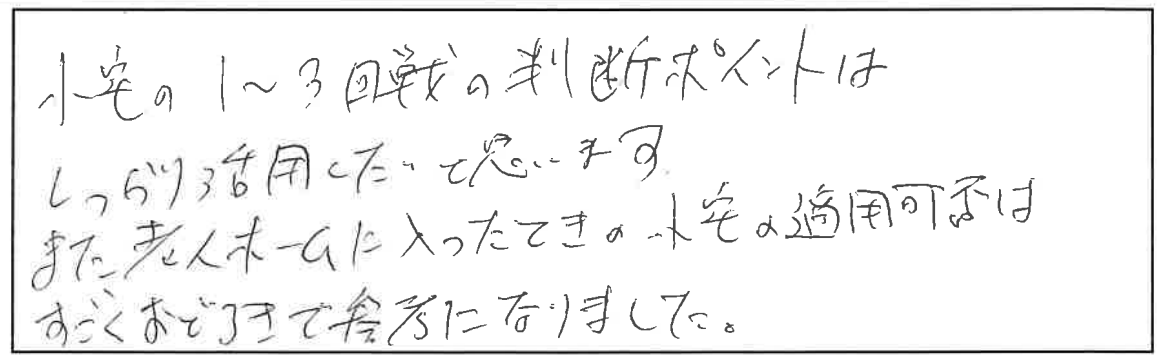 小宅の1～3回戦の判断ポイントは
しっかり活用したいと思います
また老人ホームに入ったときの小宅の適用可否は
すごくおどろきで参考になりました。